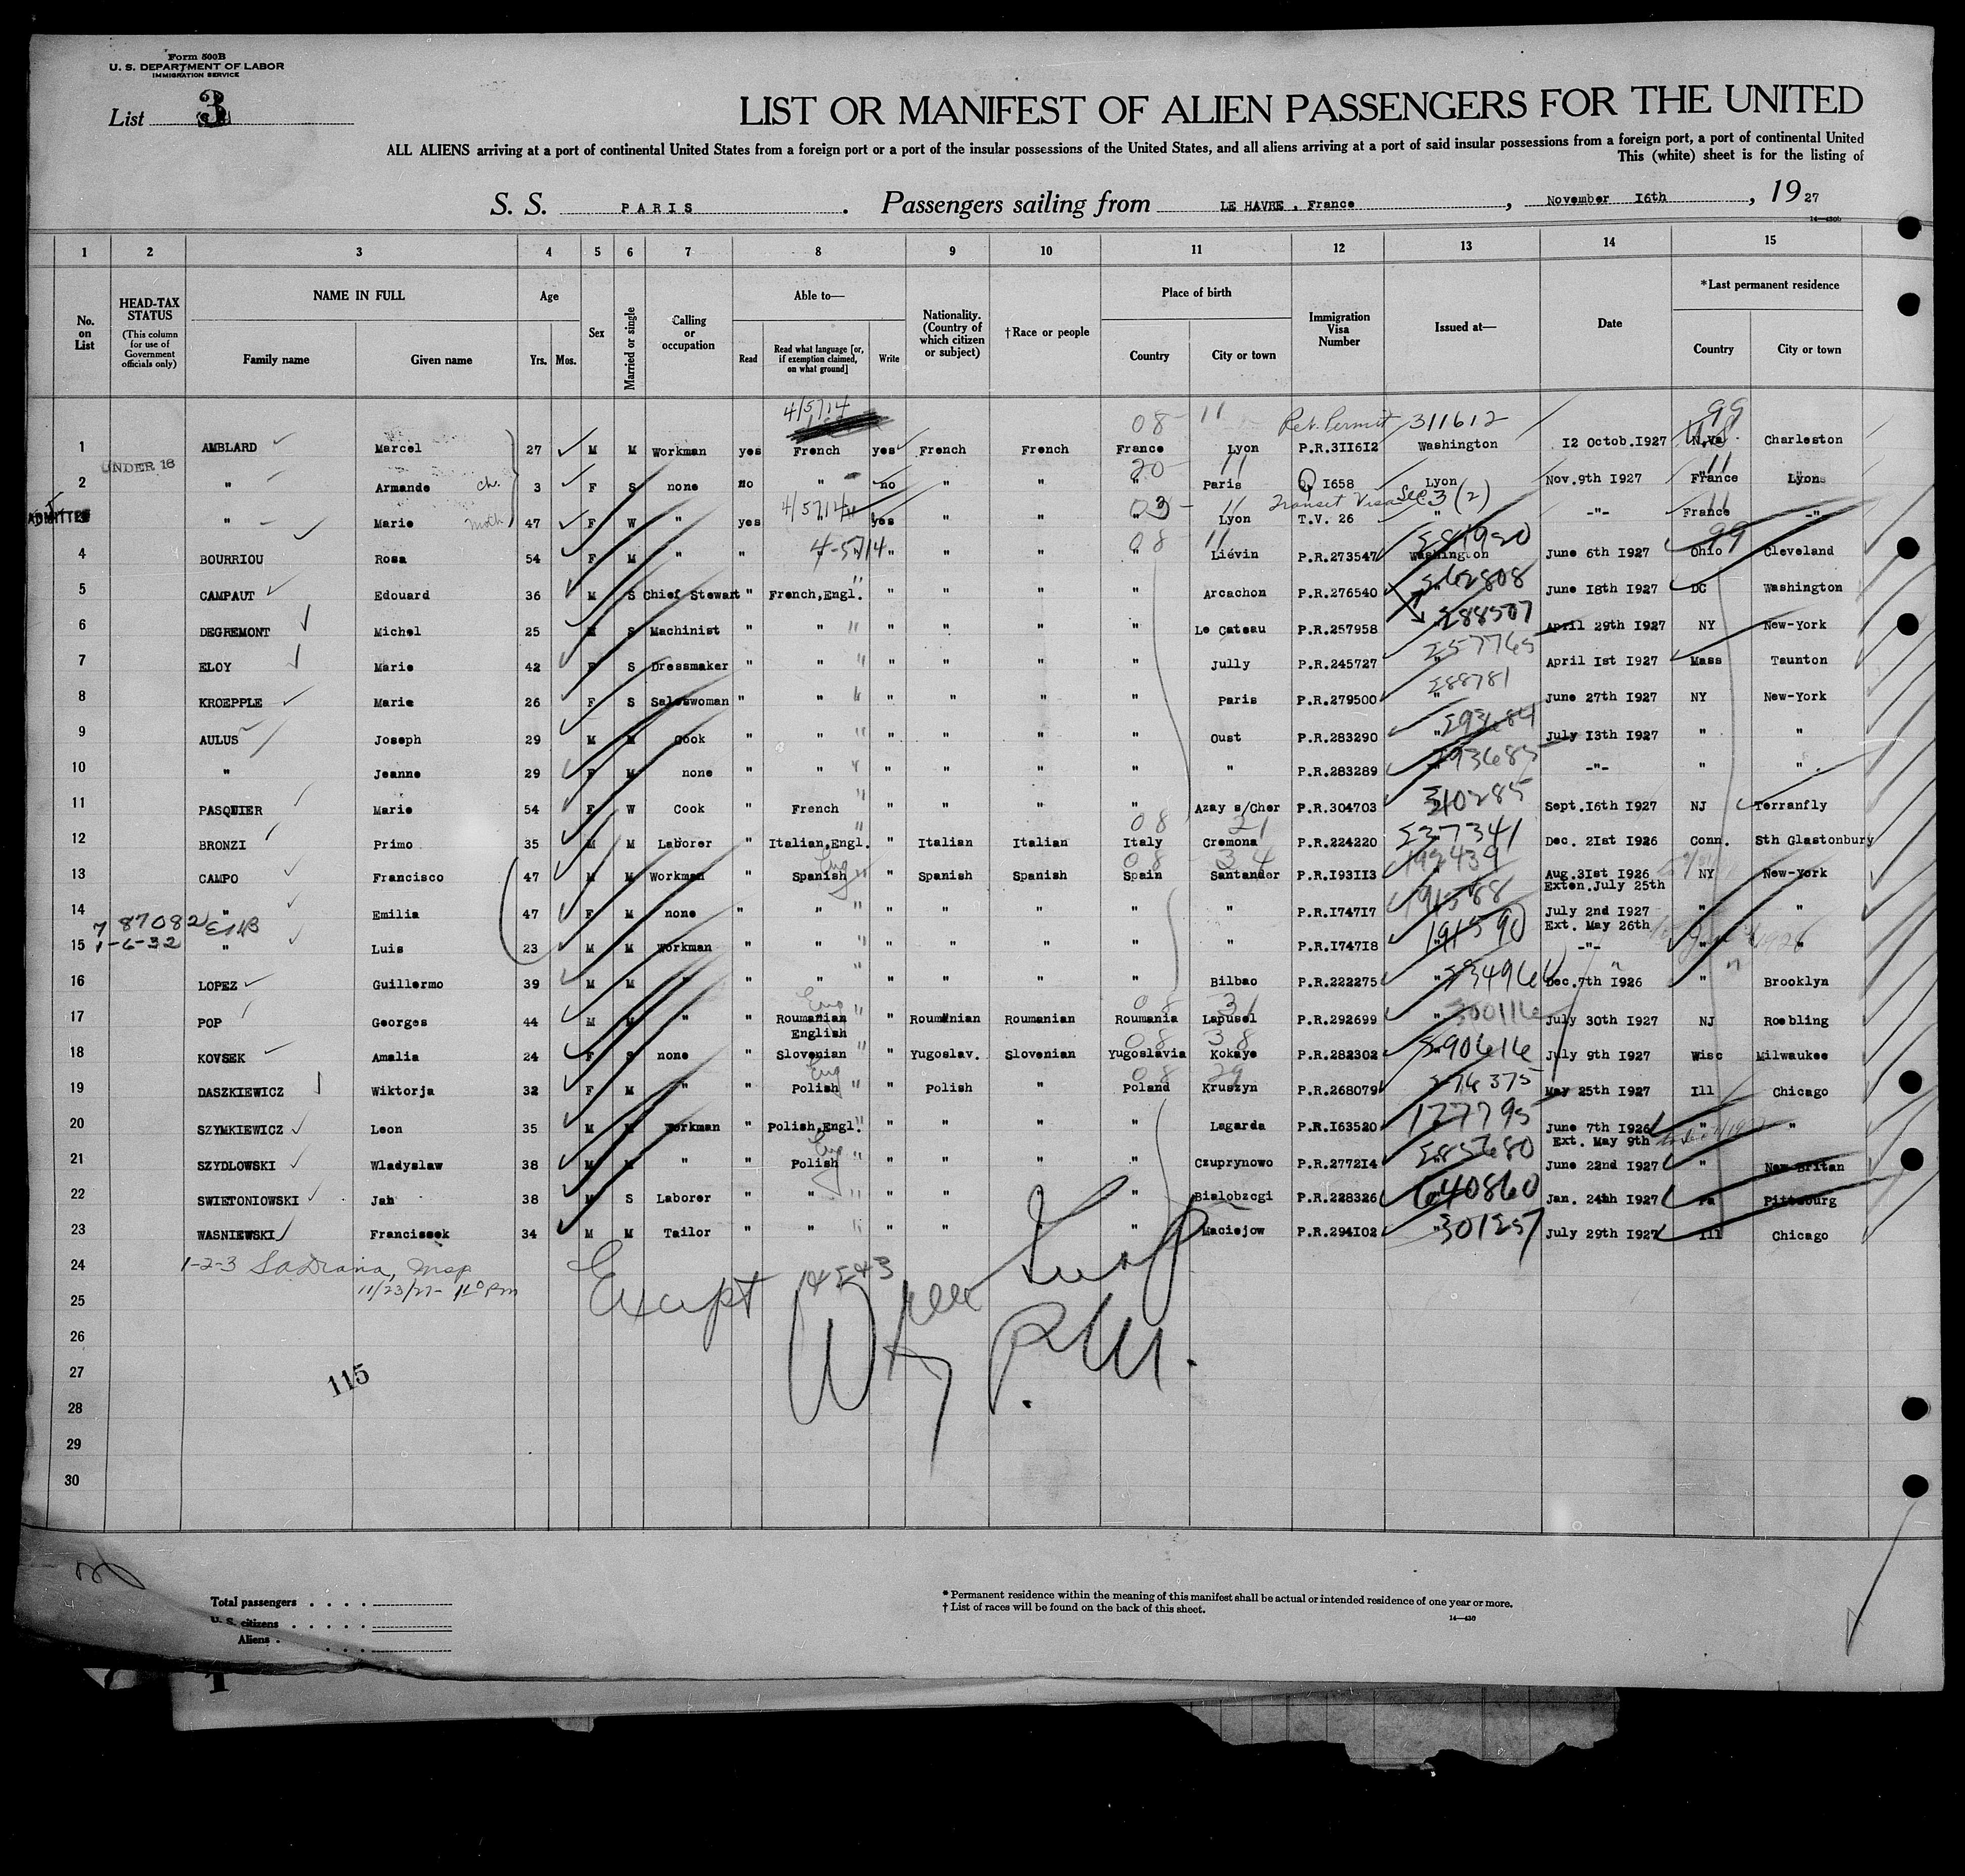 Form 500B
U. S. DEPARTMENT OF LABOR
IMMIGRATION SERVICE
List 3
LIST OR MANIFEST OF ALIEN PASSENGERS FOR THE UNITED
ALL ALIENS arriving at a port of continental United States from a foreign port or a port of the insular possessions of the United States, and all aliens arriving at a port of said insular possessions from a foreign port, a port of continental United
This (white) sheet is for the listing of
S. S. PARIS. Passengers sailing from LE HAVRE, France, November 16th, 1927
14—430b
1 2 3 4 5 6 7 8 9 10 11 12 13 14 15
No. on List
HEAD-TAX STATUS (This column for use of Government officials only)
NAME IN FULL Family name Given name
Age Yrs. Mos.
Sex
Married or single
Calling or occupation
Able to— Read Read what language [or, if exemption claimed, on what ground] Write
Nationality. (Country of which citizen or subject)
†Race or people
Place of birth Country City or town
Immigration Visa Number
Issued at—
Date
*Last permanent residence Country City or town
4/5714 08 11 Ret. Permit 311612 99
1 AMBLARD Marcel 27 M M Workman yes French yes French French France Lyon P.R.311612 Washington 12 Octob.1927 Charleston
UNDER 16 20 11 11
2 " Armande ch. 3 F S none no " no " " " Paris 1658 Lyon Nov.9th 1927 France Lyon
ADMITTED 4/5714 03 11 Transit Visa Sec. 3 (2) 11
" Marie moth 47 F W " yes " yes " " " Lyon T.V. 26 -"- France -"-
4-5714 08 11 281920 99
4 BOURRIOU Rosa 54 F M " " " " " " " Liévin P.R.273547 Washington June 6th 1927 Ohio Cleveland
262808
5 CAMPAUT Edouard 36 M S Chief Stewart " French,Engl. " " " " Arcachon P.R.276540 " June 18th 1927 DC Washington
288507
6 DEGREMONT Michel 25 M S Machinist " " " " " " Le Cateau P.R.257958 " April 29th 1927 NY New-York
257765
7 ELOY Marie 42 F S Dressmaker " " " " " " Jully P.R.245727 " April 1st 1927 Mass Taunton
288781
8 KROEPPLE Marie 26 F S Saleswoman " " " " " " Paris P.R.279500 " June 27th 1927 NY New-York
293684
9 AULUS Joseph 29 M M Cook " " " " " " Oust P.R.283290 " July 13th 1927 " "
293685
10 " Jeanne 29 F M none " " " " " " " P.R.283289 " -"- " "
310285
11 PASQUIER Marie 54 F W Cook " French " " " " Azay s/Cher P.R.304703 " Sept.16th 1927 NJ Terranfly
08 21 237341
12 BRONZI Primo 35 M M Laborer " Italian,Engl. " Italian Italian Italy Cremona P.R.224220 " Dec. 21st 1926 Conn. Sth Glastonbury
Eng 08 34 192439
13 CAMPO Francisco 47 M M Workman " Spanish " Spanish Spanish Spain Santander P.R.193113 " Aug.31st 1926 NY New-York
Exten.July 25th
191588
14 " Emilia 47 F M none " " " " " " " P.R.174717 July 2nd 1927 " "
7 87082 Ext. May 26th
1-6-32 191590
15 " Luis 23 M M Workman " " " " " " " P.R.174718 " -"- " "
16 LOPEZ Guillermo 39 M M " " " " " " " Bilbao P.R.222275 " Dec.7th 1926 " Brooklyn
Eng 08 31 300116
17 POP Georges 44 M M " " Roumanian " Roumanian Roumanian Roumania Lapusel P.R.292699 " July 30th 1927 NJ Roebling
English 08 38 290616
18 KOVSEK Amalia 24 F S none " Slovenian " Yugoslav. Slovenian Yugoslavia Kokaye P.R.282302 " July 9th 1927 Wisc Milwaukee
Eng 08 29 276375
19 DASZKIEWICZ Wiktorja 32 F M " " Polish " Polish " Poland Kruszyn P.R.268079 May 25th 1927 Ill Chicago
177795
20 SZYMKIEWICZ Leon 35 M M Workman " Polish,Engl. " " " " Lagarda P.R.163520 June 7th 1926 " "
Eng Ext. May 9th
285680
21 SZYDLOWSKI Wladyslaw 38 M M " " Polish " " " " Czuprynowo P.R.277214 " June 22nd 1927 " New-Britan
640860
22 SWIETONIOWSKI Jan 38 M S Laborer " " " " " " Bialobzcgi P.R.228326 Jan. 24th 1927 Pa Pittsburg
301257
23 WASNIEWSKI Francissek 34 M M Tailor " " " " " Maciejow P.R.294102 " July 29th 1927 Ill Chicago
24 1-2-3 Insp
11/23/27
25 Except
26
27
115
28
29
30
Total passengers . . . .
U. S. citizens . . . . .
Aliens . . . .
* Permanent residence within the meaning of this manifest shall be actual or intended residence of one year or more.
† List of races will be found on the back of this sheet.
14—430